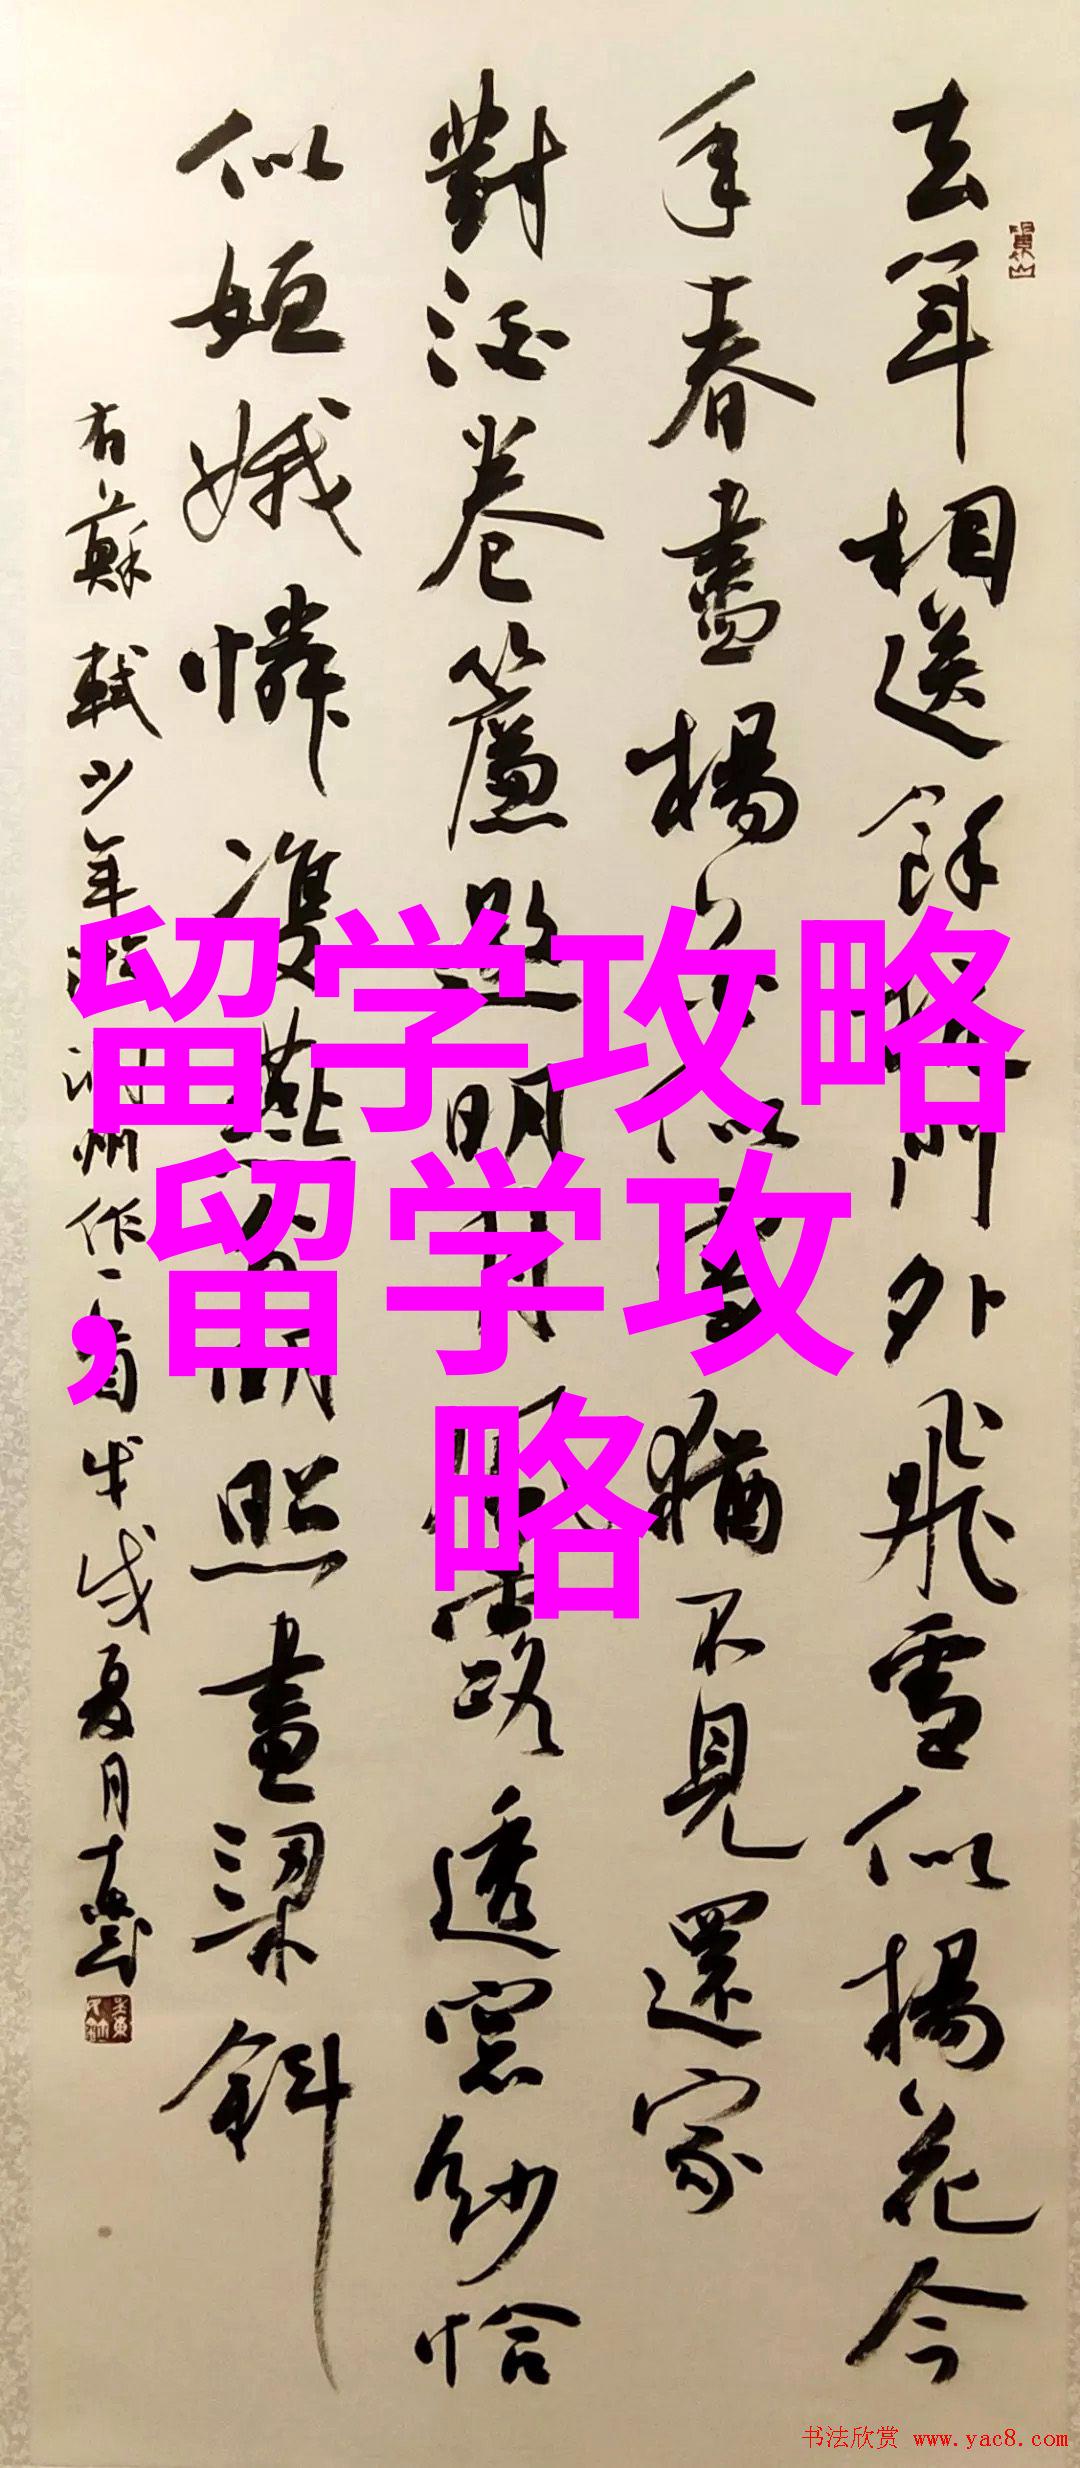 去年相送餘杭門外飛雪似楊花今
年春盡楊花似雪猶不見還家
對酒卷簾邀明月風露透窓紗恰
似姮娥憐雙燕分明照畫梁斜
右蘇軾少年游潤州作一首戊戌夏月
留学攻略
,留学攻
略
书法欣赏 www.yac8.com